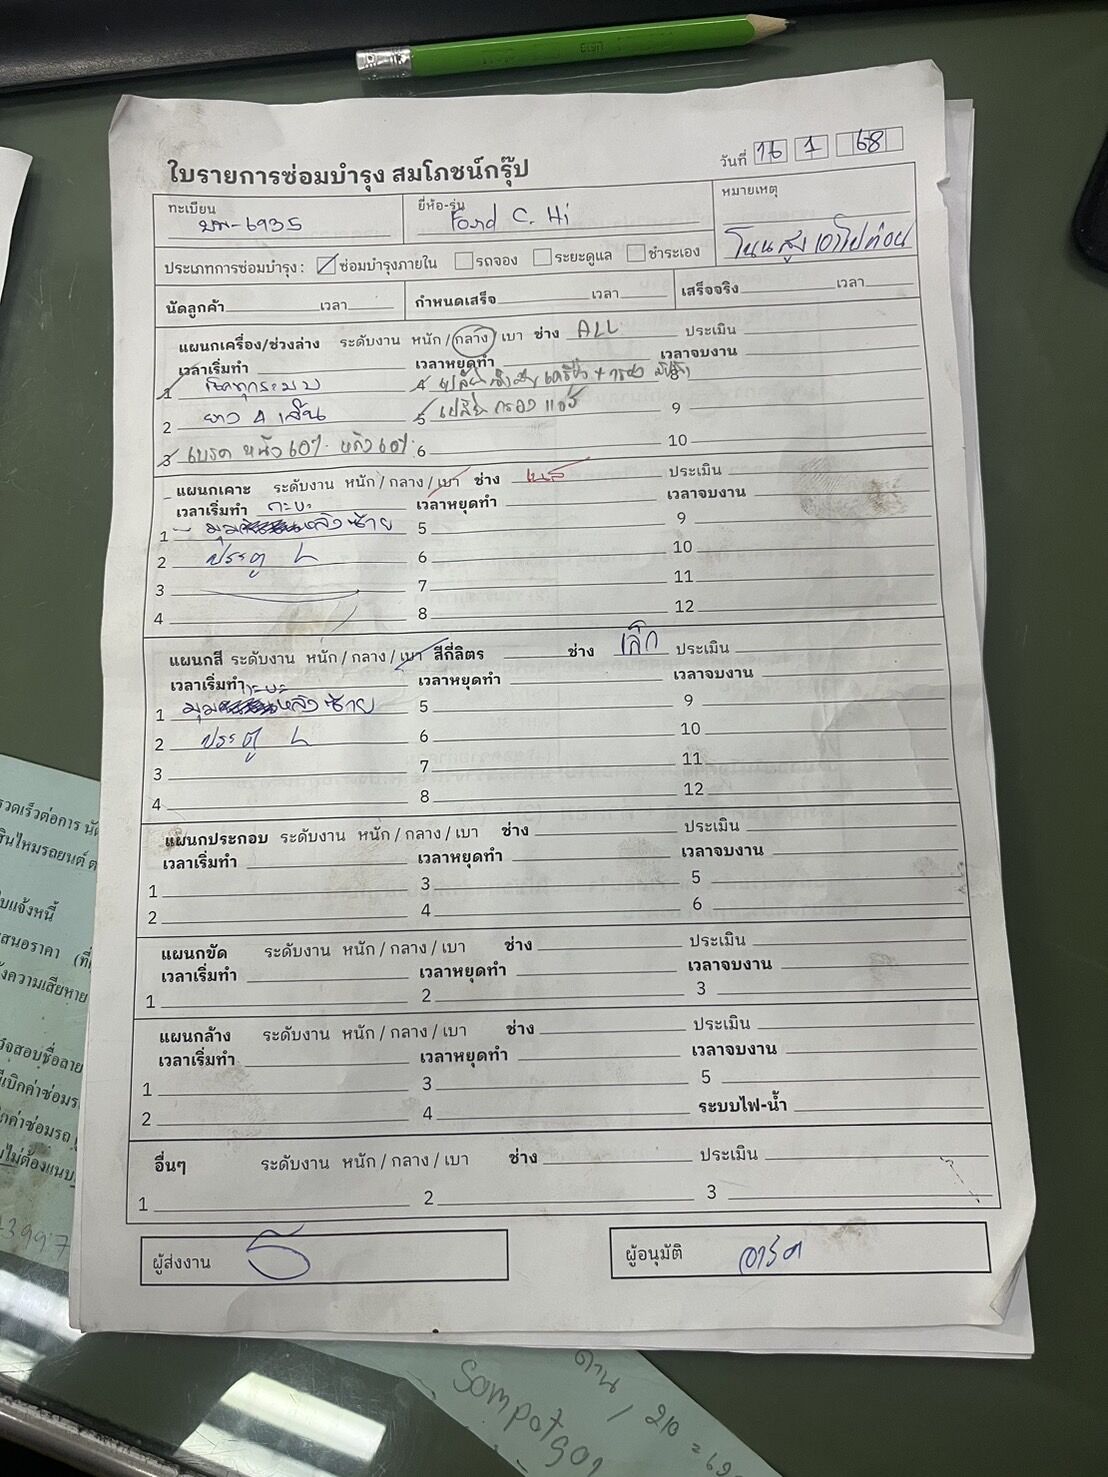 ใบรายการซ่อมบำรุง สมโภชน์กรุ๊ป
วันที่ 16 1 68
ทะเบียน
ยี่ห้อ-รุ่น
หมายเหตุ
บพ-6935
Ford C. Hi
โนนสูง เอาไปก่อน
ประเภทการซ่อมบำรุง : ซ่อมบำรุงภายใน รถจอง ระยะดูแล ชำระเอง
นัดลูกค้า เวลา กำหนดเสร็จ เวลา เสร็จจริง เวลา
แผนกเครื่อง/ช่วงล่าง ระดับงาน หนัก / กลาง / เบา ช่าง ALL ประเมิน
เวลาเริ่มทำ เวลาหยุดทำ เวลาจบงาน
1 เช็คทุกระบบ 4 เปลี่ยน เครื่อง + กรอง 8
2 ยาง 4 เส้น 5 เปลี่ยนกรองแอร์ 9
3 เบรค หน้า 60% หลัง 60% 6 10
แผนกเคาะ ระดับงาน หนัก / กลาง / เบา ช่าง ประเมิน
เวลาเริ่มทำ เวลาหยุดทำ เวลาจบงาน
กะบะ
1 มุม หลังซ้าย 5 9
2 ประตู L 6 10
3 7 11
4 8 12
แผนกสี ระดับงาน หนัก / กลาง / เบา สีกี่ลิตร ช่าง เล็ก ประเมิน
เวลาเริ่มทำ เวลาหยุดทำ เวลาจบงาน
กะบะ
1 มุม หลังซ้าย 5 9
2 ประตู L 6 10
3 7 11
4 8 12
แผนกประกอบ ระดับงาน หนัก / กลาง / เบา ช่าง ประเมิน
เวลาเริ่มทำ เวลาหยุดทำ เวลาจบงาน
1 3 5
2 4 6
แผนกขัด ระดับงาน หนัก / กลาง / เบา ช่าง ประเมิน
เวลาเริ่มทำ เวลาหยุดทำ เวลาจบงาน
1 2 3
แผนกล้าง ระดับงาน หนัก / กลาง / เบา ช่าง ประเมิน
เวลาเริ่มทำ เวลาหยุดทำ เวลาจบงาน
1 3 5
2 4 ระบบไฟ-น้ำ
อื่นๆ ระดับงาน หนัก / กลาง / เบา ช่าง ประเมิน
1 2 3
ผู้ส่งงาน
ผู้อนุมัติ อาร์ต
รวดเร็วต่อการ
สินไหมรถยนต์
ใบแจ้งหนี้
เสนอราคา
ความเสียหาย
เบิกค่าซ่อมร
ค่าซ่อมรถ
ไม่ต้องแนบ
3997
ด้าน / 210
Sompot